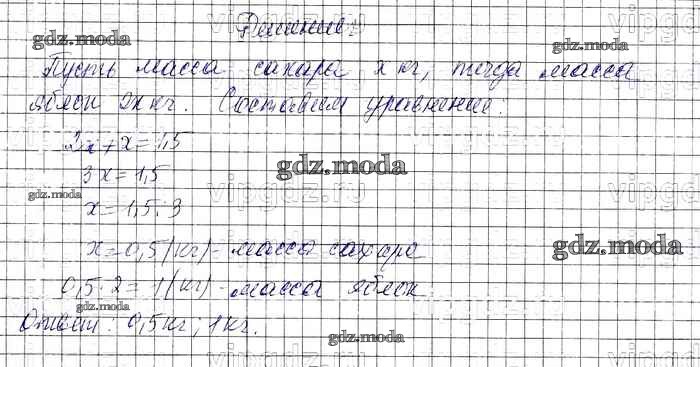 Решение:
Пусть масса сахара x кг, тогда масса
яблок 2x кг. Составим уравнение.
2x + x = 1,5
3x = 1,5
x = 1,5 : 3
x = 0,5 (кг) - масса сахара
0,5 · 2 = 1 (кг) - масса яблок
Ответ: 0,5 кг; 1 кг.
gdz.moda
gdz.moda
gdz.moda
gdz.moda
gdz.moda
gdz.moda
gdz.moda
vipgdz.ru
vipgdz.ru
vipgdz.ru